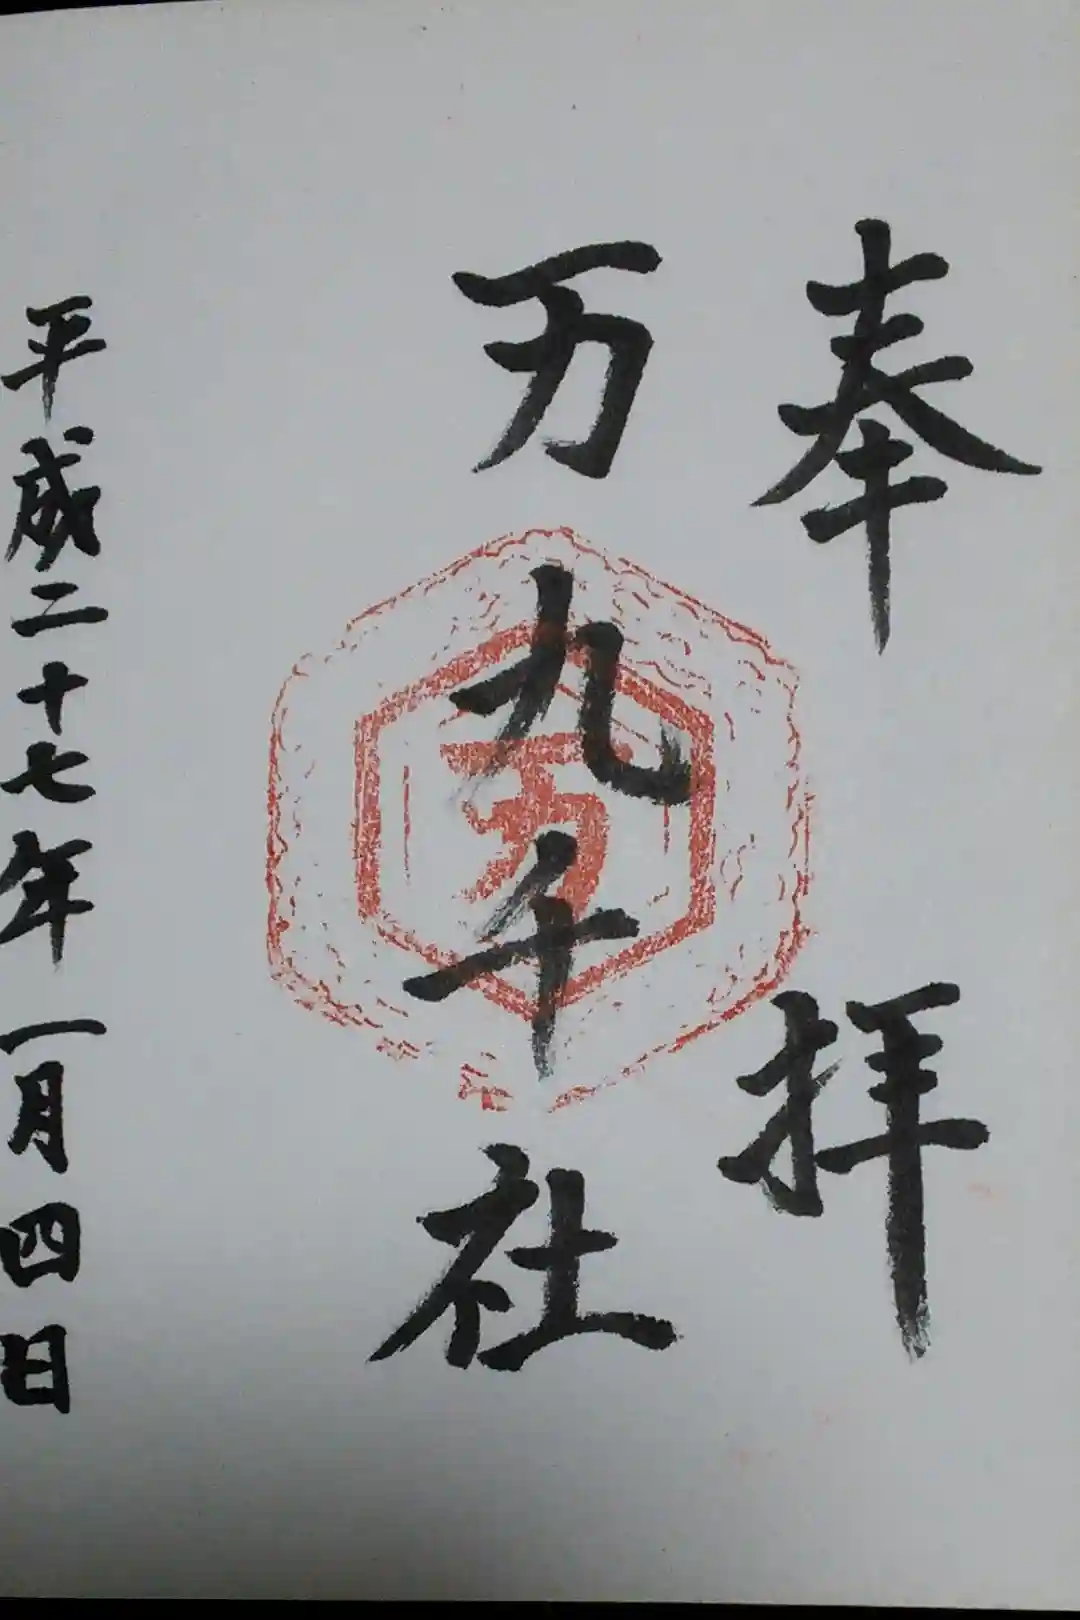 奉拝
万九千社
万
平成二十七年一月四日